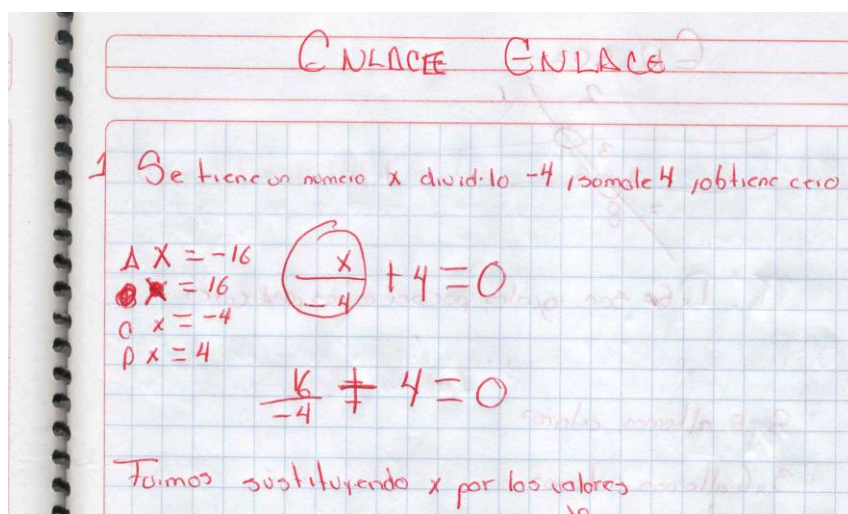 ENLACEE ENLACE
1 Se tiene un numero x dividilo -4, somale 4, obtiene cero
A X = -16
B x = 16
C x = -4
D x = 4
x/-4 + 4 = 0
16/-4 + 4 = 0
Fuimos sustituyendo x por los valores